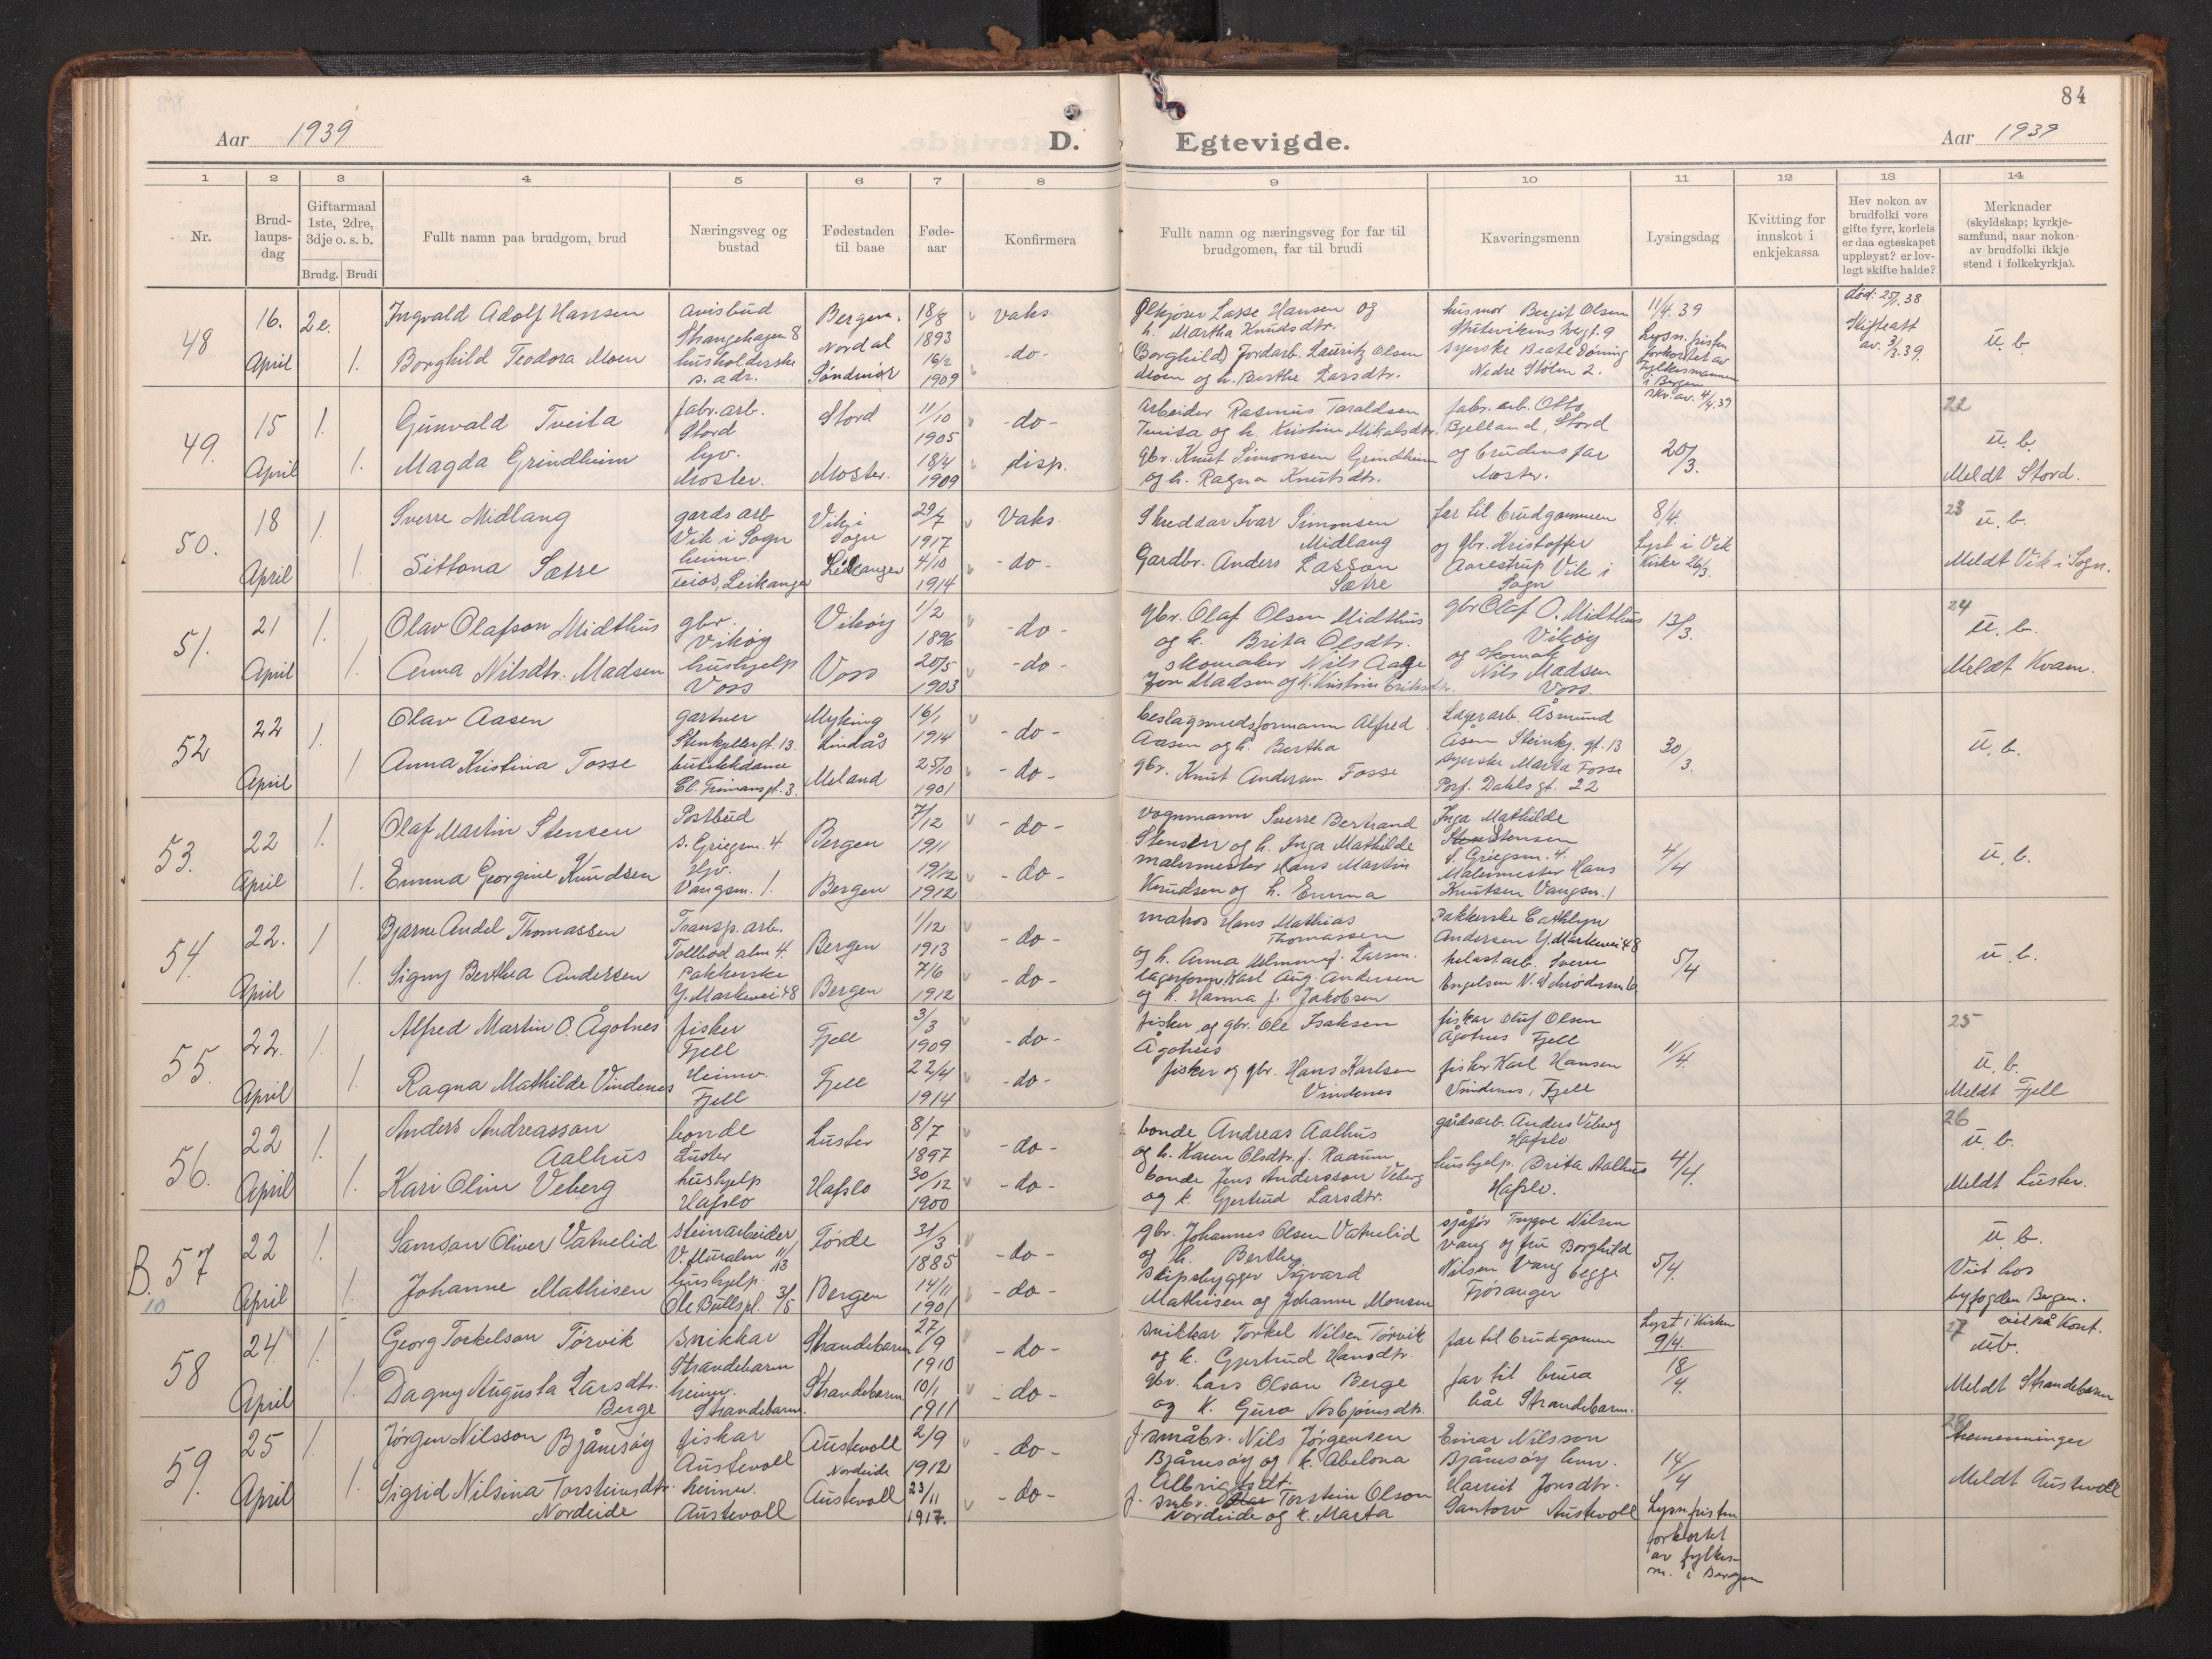 84
Aar 1939
D.
Egtevigde.
Aar 1939
1 2 3 4 5 6 7 8 9 10 11 12 13 14
Nr.
Brud-
laups-
dag
Giftarmaal
1ste, 2dre,
3dje o. s. b.
Brudg. Brudi
Fullt namn paa brudgom, brud
Næringsveg og
bustad
Fødestaden
til baae
Føde-
aar
Konfirmera
Fullt namn og næringsveg for far til
brudgomen, far til brudi
Kaveringsmenn
Lysingsdag
Kvitting for
innskot i
enkjekassa
Hev nokon av
brudfolki vore
gifte fyrr, korleis
er daa egteskapet
uppløyst? er lov-
legt skifte halde?
Merknader
(skyldskap; kyrkje-
samfund, naar nokon
av brudfolki ikkje
stend i folkekyrkja).
48
16.
April
2 e.
1.
Ingvald Adolf Hansen
Borghild Teodora Moen
avisbud
Strangehagen 8
husholderske
s. adr.
Bergen.
Nordal
Søndmør
18/8
1893
16/2
1909
vaks.
-do-
Lasse Hansen og
h. Martha Knudsdtr.
Borghild) Jordarb. Lauritz Olsen
Moen og h. Berthe Larsdtr.
husmor Bergit Olsen
syerske Beate
Nedre Stølen 2.
11/4.39
Lysn.fristen
forkortet av
Fylkesmannen
i Bergen
skr. av. 4/4.39
død: 25/1.38
Skifteatt
av. 3/3.39.
u. b.
49.
15
April
1.
1.
Gunvald Tveita
Magda Grindheim
fabr. arb.
Stord
hjv.
Moster.
Stord
Moster.
11/10
1905
18/4
1909
-do-
disp.
Arbeider Rasmus Taraldsen
Tveita og h. Kristine Mikalsdtr.
gbr. Knut Simonsen Grindheim
og h. Ragna Knutsdtr.
fabr. arb. Otto
Bjelland, Stord
og brudens far
Mostr.
20/3.
22
u. b.
Meldt Stord.
50.
18
April
1.
1.
Sverre Midlang
Sittona Sætre
gards arb
Vik i Sogn
heimv.
Feios, Leikanger
Vik i
Sogn
Leikanger
29/7
1917
4/10
1914
Vaks.
-do-
Skreddar Ivar Simonsen
Midlang
Gardbr. Anders Lasson
Sætre
far til brudgommen
og gbr. Kristoffer
Aarestrup Vik i
Sogn
8/4.
Lyst i Vik
Kirke 26/3.
23
u. b.
Meldt Vik i Sogn.
51.
21
April
1.
1.
Olav Olafson Midthus
Anna Nilsdtr. Madsen
gbr.
Vikøy
hushjelp
Voss
Vikøy
Voss
1/2
1896
20/5
1903
-do-
-do-
gbr. Olaf Olsen Midthus
og h. Brita Olsdtr.
skomaker Nils Aage
Jon Madsen og k. Kristine Eriksdtr.
gbr Olaf O. Midthus
Vikøy
og skomak
Nils Madsen
Voss.
13/3.
24
u. b.
Meldt Kvam.
52
22
April
1.
1
Olav Aasen
Anna Kristina Fosse
gartner
Stenkjellergt. 13.
butikkdame
Cl. Frimansgt. 3.
Myking
Lindås
Meland
16/1
1914
25/10
1901
-do-
-do-
beslagsmedsformann Alfred
Aasen og h. Bertha
gbr. Knut Andersen Fosse
Lagerarb. Åsmund
Åsen Steinkj. gt. 13
syerske Marta Fosse
Prof. Dahls gt. 22
30/3.
u. b.
53.
22
April
1.
1.
Olaf Martin Stensen
Emma Georgine Knudsen
Postbud
s. Griegsm. 4.
Hjv.
Vangsm. 1.
Bergen
Bergen
7/12
1911
19/12
1912
-do-
-do-
vognmann Sverre Bertrand
Stensen og h. Inga Mathilde
malermester Hans Martin
Knudsen og h. Emma
Inga Mathilde
Stensen
S. Griegsm. 4.
Malermester Hans
Knutsen Vangsm. 1
4/4
u. b.
54.
22.
April
1
1.
Bjarne Andel Thomassen
Signy Berthea Andersen
Transp. arb.
Tollbod alm 4.
Pakkerske
Y. Markevei 48
Bergen
Bergen
1/12
1913
7/6
1912
-do-
-do-
matros Hans Mathias
Thomassen
og h. Anna f. Larsen.
lagerform. Karl Aug. Andersen
og h. Hanna f. Jakobsen
Pakkerske Cathlyn
Andersen Y. Markevei 48
Sverre
Engelsen N. Schrødersm 6
5/4
u. b.
55.
22.
April
1.
1.
Alfred Martin O. Ågotnes
Ragna Mathilde Vindenes
fisker
Fjell
Heimv.
Fjell
Fjell
Fjell
3/3
1909
22/4
1914
-do-
-do-
fisker og gbr. Ole Isaksen
Ågotnes
fisker og gbr. Hans Karlsen
Vindenes
fiskar Oluf Olsen
Ågotnes Fjell
fisker Karl Hansen
Vindenes, Fjell
11/4.
25
u. b.
Meldt Fjell
56.
22
April
1.
1.
Anders Andreasson
Aalhus
Kari Oline Veberg
bonde
Luster
hushjelp
Hafslo
Luster
Hafslo
8/7
1897
30/12
1900
-do-
-do-
bonde Andreas Aalhus
og h. Karen Olsdtr. f. Raaum
bonde Jens Andersson Veberg
og k. Gjertrud Larsdtr.
gårdsarb. Anders Veberg
Hafslo
hushjelp. Brita Aalhus
Hafslo.
4/4.
26
u. b.
Meldt Luster.
B. 57
10
22
April
1.
1.
Samson Oliver Vatnelid
Johanne Mathisen
steinarbeider
V. Muralm 11/13
hushjelp.
Ole Bullspl. 3/5
Førde
Bergen
31/3
1885
14/11
1901
-do-
-do-
gbr. Johannes Olsen Vatnelid
og h. Berthe
skipsbygger Sigvard
Mathisen og Johanne Monsen
sjåfør Trygve Nilsen
Vang og fru Borghild
Nilsen Vang begge
Fjøsanger
5/4.
u. b.
Viet hos
byfogden Bergen.
viet på Kont.
58
24
April
1.
1.
Georg Torkelson Tørvik
Dagny Augusta Larsdtr.
Berge
Snikkar
Strandebarm
heimv.
Strandebarm.
Strandebarm
Strandebarm.
27/9
1910
10/1
1911
-do-
-do-
snikkar Torkel Nilsen Tørvik
og k. Gjertrud Hansdtr.
gbr. Lars Olson Berge
og k. Guro Asbjørnsdtr.
far til brudgomen
far til brura
båe Strandebarm.
Lyst i Kirken
9/4.
18/4.
27
u b.
Meldt Strandebarm
59.
25
April
1.
1.
Jørgen Nilsson Bjånesøy
Sigrid Nilsina Torsteinsdtr.
Nordeide
fiskar
Austevoll
heimv.
Austevoll
Austevoll
Nordeide
Austevoll
2/9
1912
23/11
1917.
-do-
-do-
f. småbr. Nils Jørgensen
Bjånesøy og k. Abelona
Albrigtsdt.
f. smbr. Torstein Olson
Nordeide og k. Marta
Einar Nilsson
Bjånesøy
Harriet Jonsdtr.
Austevoll
14/4
Lysn.fristen
forkortet
av fylkes-
m. i Bergen
28
tremenninger
Meldt Austevoll